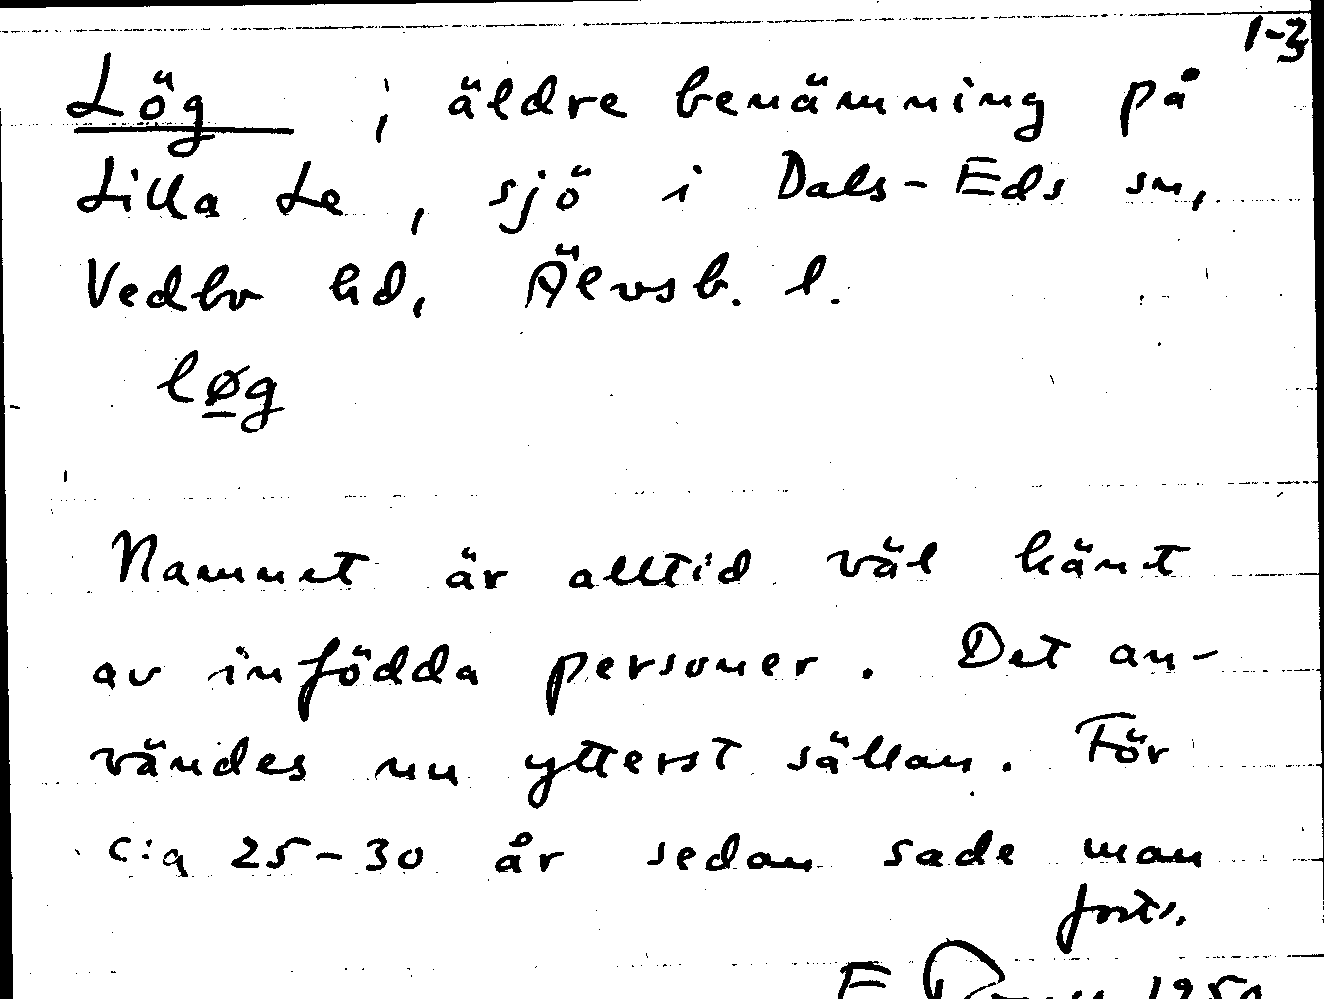 1-3
Lög ; äldre benämning på
Lilla Le, sjö i Dals-Eds sn,
Vedbo hd, Älvsb. l.
løg
Namnet är alltid väl känt
av infödda personer. Det an-
vändes nu ytterst sällan. För
c:a 25-30 år sedan sade man
forts.
E